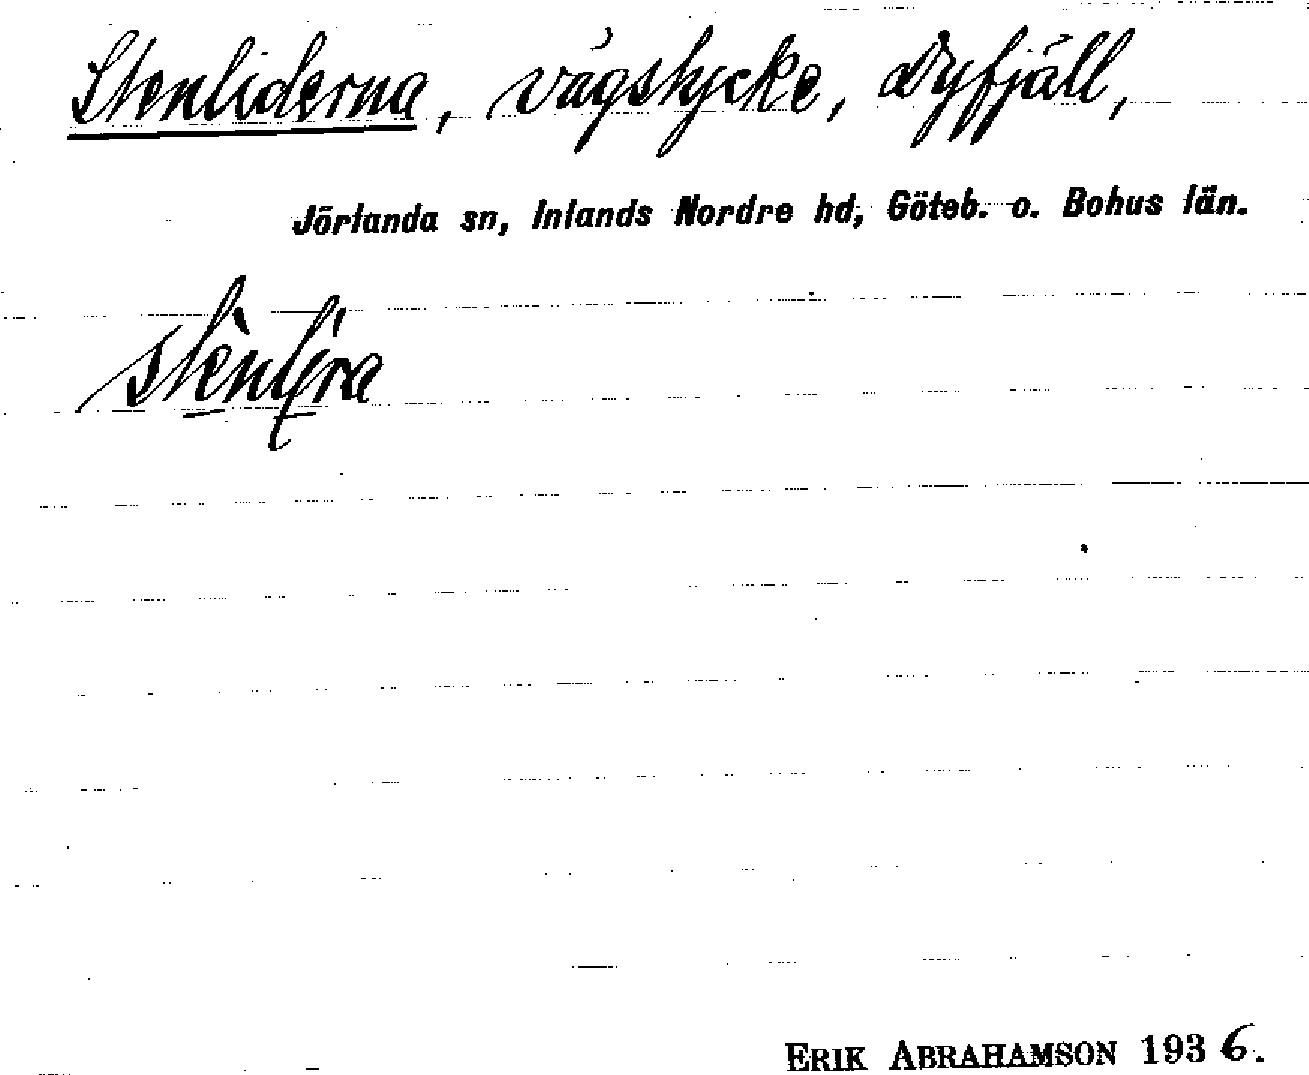 Stenliderna, vägstycke, Dyfjäll,
Jörlanda sn, Inlands Nordre hd, Göteb. o. Bohus län.
ERIK ABRAHAMSON 1936.